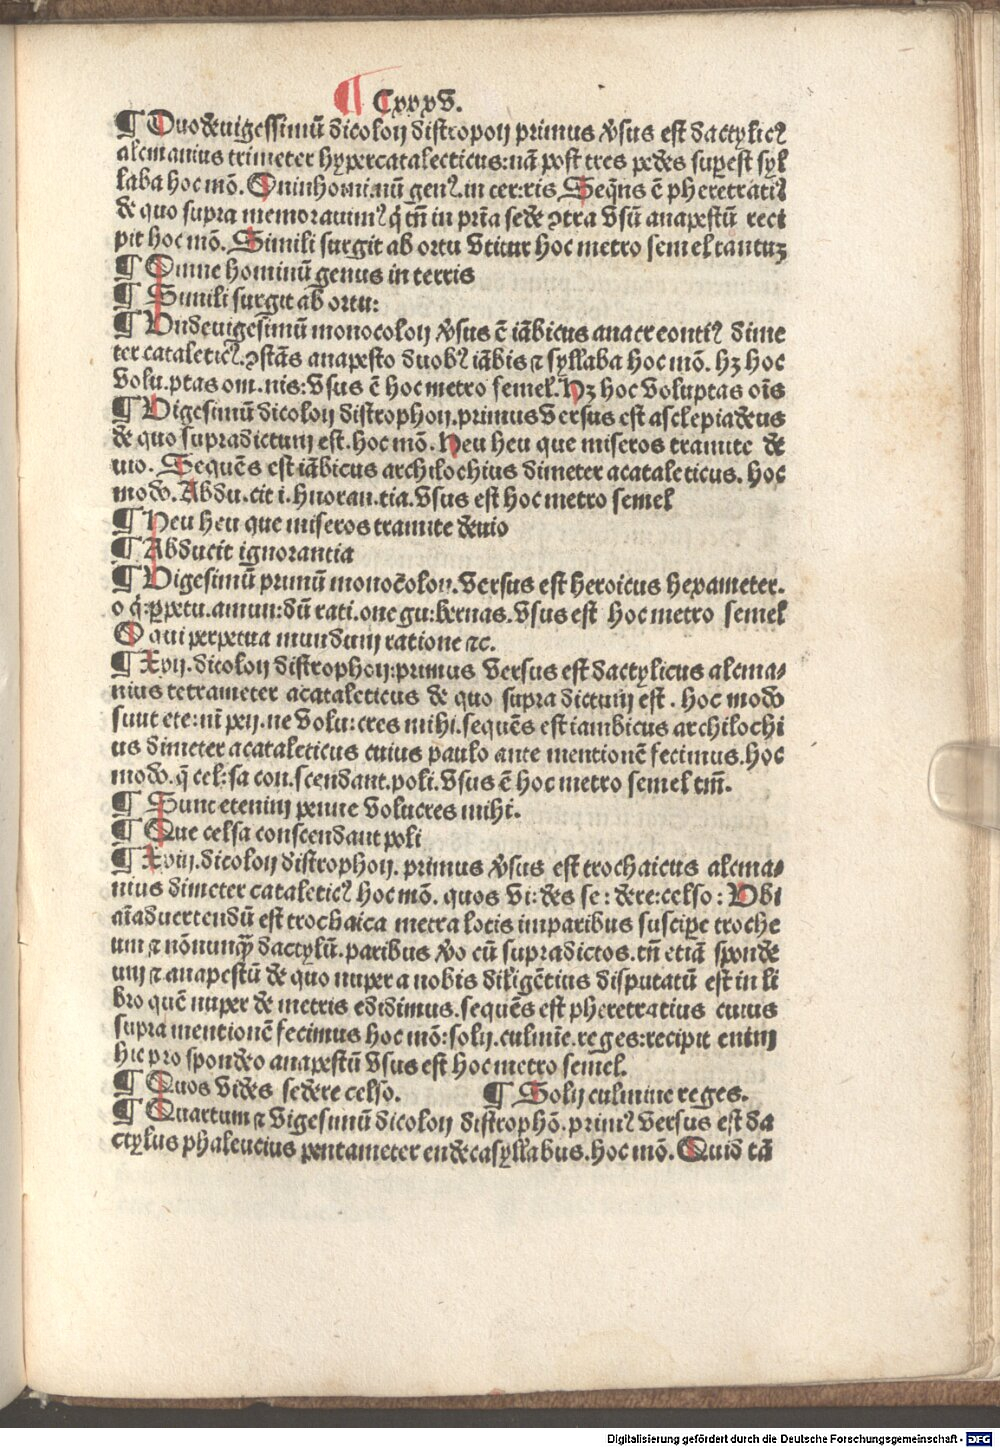 ¶ Cxxxv.
¶ Duodeuigessimū dicolon distropon primus v̓sus est dactylicꝰ
alcmanius trimeter hypercatalecticus: nā post tres pedes suꝑest syl
laba hoc mō. Omnhomi.nū genꝰ. in cer:ris Seqn̄s ē pheretratiꝰ
de quo supra memorauimꝰ q̄ tn̄ in prīa sede ꝯtra vsū anapestū reci
pit hoc mō. Simili surgit ab ortu vtitur hoc metro semel tantuꝫ
¶ Omne hominū genus in terris
¶ Simili surgit ab ortu:
¶ Vndeuigesimū monocolon v̓sus ē iābicus anacreontiꝰ dime
ter cataleticꝰ. ꝯstās anapesto duobꝰ iābis ⁊ syllaba hoc mō. hꝫ hoc
volu.ptas om.nis: vsus ē hoc metro semel. Hꝫ hoc voluptas oīs
¶ Vigesimū dicolon distrophon. primus versus est asclepiadeus
de quo supradictum est. hoc mō. Heu heu que miseros tramite de
uio. Sequēs est iābicus archilochius dimeter acataleticus. hoc
modo. Abdu.cit i.hnoran.tia. vsus est hoc metro semel
¶ Heu heu que miseros tramite deuio
¶ Abducit ignorantia
¶ Vigesimū primū monocolon. versus est heroicus hexameter.
o q̇:ꝑpetu.amun:dū rati.one gu:bernas. vsus est hoc metro semel
O qui perpetua mundum ratione ⁊c.
¶ Xxij. dicolon distrophon: primus versus est dactylicus alcma-
nius tetrameter acataleticus de quo supra dictum est. hoc modo
sunt ete:nī pen.ne volu:cres mihi. sequēs est iambicus archilochi
us dimeter acataleticus cuius paulo ante mentionē fecimus. hoc
modo. q̄ cel:sa con.scendant.poli. vsus ē hoc metro semel tm̄.
¶ Sunt etenim penne volucres mihi.
¶ Que celsa conscendant poli
¶ Xxiij. dicolon distrophon. primus v̓sus est trochaicus alcma-
nius dimeter cataleticꝰ hoc mō. quos vi:des se:dere:celso: Vbi
aīaduertendū est trochaica metra locis imparibus suscipe troche
um ⁊ nōnunqꝫ dactylū. paribus v̓o cū supradictos. tn̄ etiā sponde
um ⁊ anapestū de quo nuper a nobis diligētius disputatū est in li
bro quē nuper de metris edidimus. sequēs est pheretratius cuius
supra mentionē fecimus hoc mō: solij.culmīe.reges: recipit enim
hic pro spondeo anapestū vsus est hoc metro semel.
¶ Quos vides sedere celso. ¶ Solij culmine reges.
¶ Quartum ⁊ vigesimū dicolon distrophō. primꝰ versus est da
ctylus phaleucius pentameter endecasyllabus. hoc mō. Quid tā
Digitalisierung gefördert durch die Deutsche Forschungsgemeinschaft - DFG